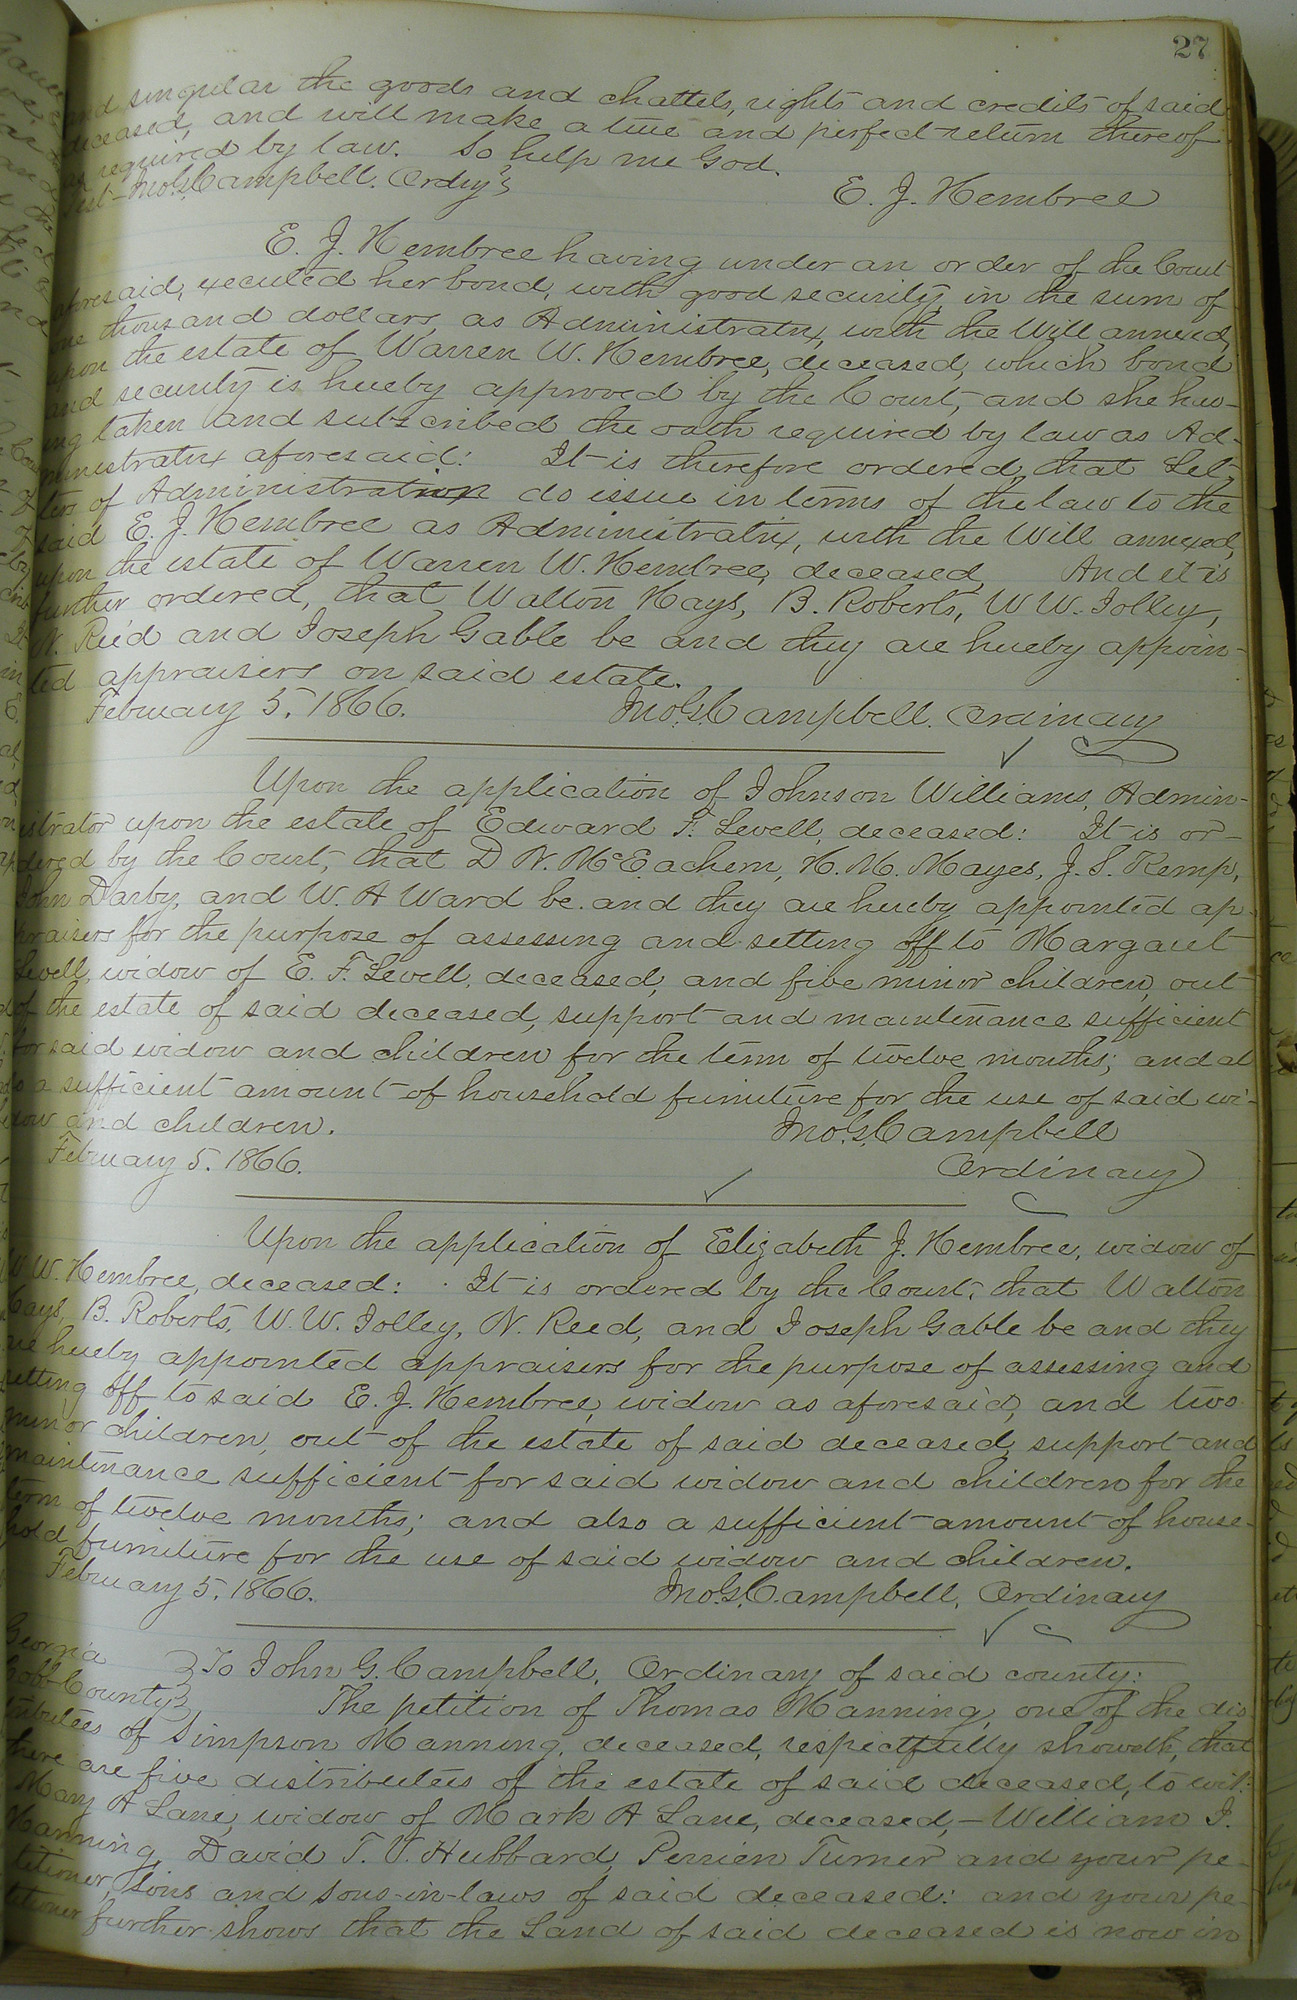 27
and singular the goods and chattels, rights and credits of said
deceased, and will make a true and perfect return thereof
as required by law. So help me God.
Test—Jno. G. Campbell. Ordry E. J. Hembree
E. J. Hembree having under an order of the Court
aforesaid, executed her bond, with good security, in the sum of
one thousand dollars, as Administratrix, with the Will annexed,
upon the estate of Warren W. Hembree, deceased, which bond
and security is hereby approved by the Court, and she hav-
ing taken and subscribed the oath required by law as Ad-
ministratrix aforesaid: It is therefore ordered, that Let-
ters of Administration do issue in terms of the law to the
said E. J. Hembree as Administratrix, with the Will annexed,
upon the estate of Warren W. Hembree, deceased, And it is
further ordered, that Walton Hays, B. Roberts, W. W. Jolley,
N. Reed and Joseph Gable be and they are hereby appoin-
ted appraisers on said estate.
February 5, 1866. Jno. G. Campbell. Ordinary
Upon the application of Johnson Williams, Admin-
istrator upon the estate of Edward F. Levell, deceased: It is or-
dered by the Court, that D N. McEachern, H. M. Mayes, J. S. Kemp,
John Darby, and W. A Ward be and they are hereby appointed ap-
praisers for the purpose of assessing and setting off to Margaret
Levell, widow of E. F. Levell, deceased, and five minor children, out
of the estate of said deceased, support and maintenance sufficient
for said widow and children for the term of twelve months; and al
so a sufficient amount of household furniture for the use of said wi-
dow and children. Jno. G. Campbell
February 5. 1866. Ordinary
Upon the application of Elizabeth J. Hembree, widow of
W W. Hembree, deceased: It is ordered by the Court, that Walton
Hays, B. Roberts, W. W. Jolley, N. Reed, and Joseph Gable be and they
are hereby appointed appraisers for the purpose of assessing and
setting off to said E. J. Hembree, widow as aforesaid, and two
minor children, out of the estate of said deceased, support and
maintenance sufficient for said widow and children for the
term of twelve months; and also a sufficient amount of house-
hold furniture for the use of said widow and children.
February 5, 1866. Jno. G. Campbell, Ordinary
Georgia
Cobb County To John G. Campbell, Ordinary of said county:
The petition of Thomas Manning, one of the dis
tributees of Simpson Manning, deceased, respectfully showeth, that
there are five distributees of the estate of said deceased, to wit:
Mary A Lane, widow of Mark A Lane, deceased,—William J.
Manning, David T. V. Hubbard, Perrien Turner and your pe-
titioner, sons and sons-in-laws of said deceased: and your pe-
titioner further shows that the Land of said deceased is now in